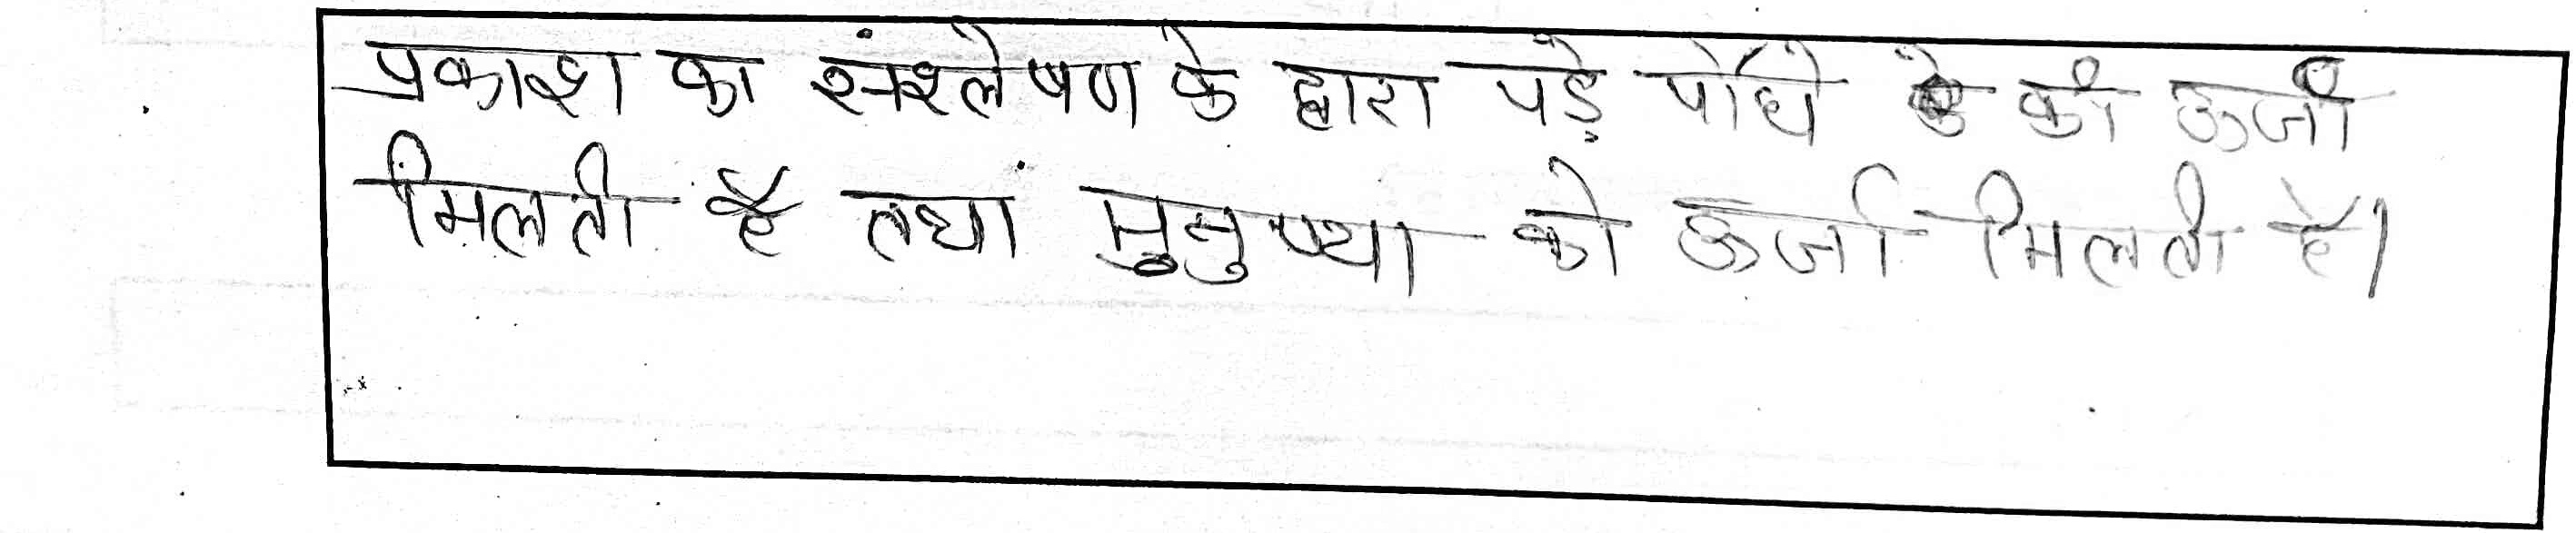 प्रकाश का संश्लेषण के द्वारा पड़े पौधे को ऊर्जा
मिलती है तथा मुनुष्या को ऊर्जा मिलती है।